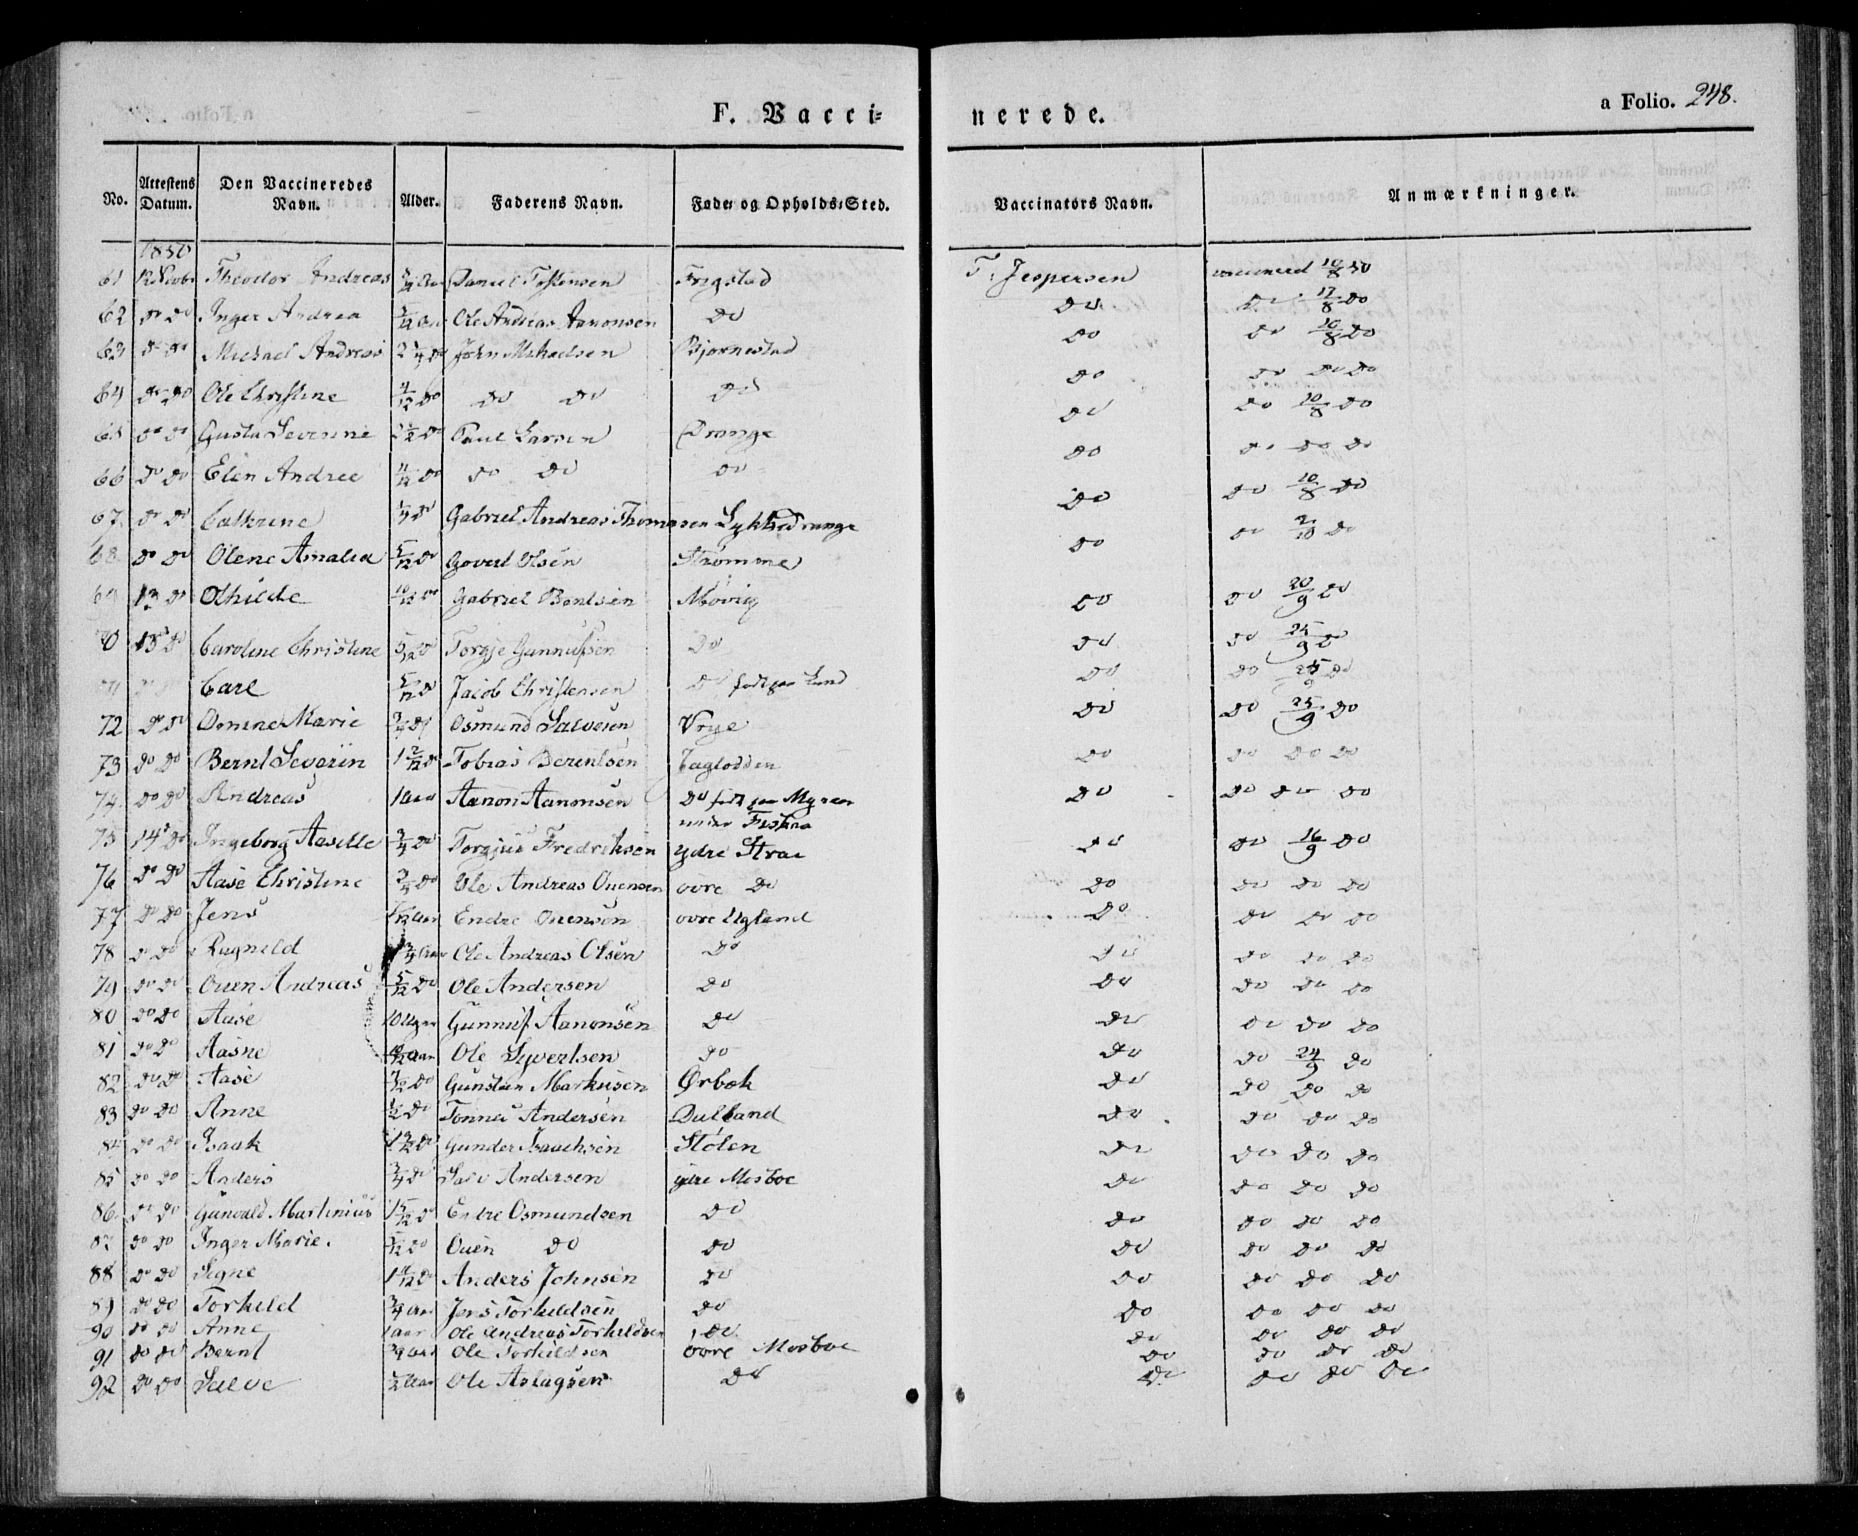 F. Vacci=
nerede.
a Folio. 248.
No. Attestens Datum. Den Vaccineredes Navn. Alder. Faderens Navn. Føde- og Opholds-Sted. Vaccinators Navn. Anmærkninger.
1850
61 12 Novbr Theodor Andreas 3/4 Aar Daniel Tostensen Frigstad T. Jespersen vaccineret 10/8 50
62 do do Inger Andrea Aar Ole Andreas Aanonsen do do do 17/8 do
63 do do Michael Andreas 2 1/4 do John Mikaelsen Bjørnestad do do 10/8 do
64 do do Ole Christine 4/12 do do do do do do do do
65 do do Gusta Severine do Paul Larsen Drange do do 10/8 do
66 do do Elen Andree 4/12 do do do do do do do do
67 do do Cathrine do Gabriel Andreas Thomasen Lykkedrange do do 10/8 do
68 do do Olene Amalia 5/12 do Govert Olsen Strømme do do 2/10 do
69 13 do Othilde 10/12 do Gabriel Bentsen Møvig do do 20/9 do
70 13 do Caroline Christine 5/12 do Torgje Gunnufsen do do do 25/9 do
71 do do Carl 5/12 do Jacob Christensen do født paa Lund do do 25/9 do
72 do do Osmine Marie 3/4 do Osmund Salvesen Vrge do do 25/9 do
73 do do Bernt Severin 1 2/12 do Tobias Berentsen Faglodden do do do do
74 do do Andreas 1 Aar Aanon Aanonsen do født paa Myren under Fiskaa do do do do
75 14 do Ingeborg Aasille 3/4 do Torgius Fredriksen ydre Strai do do 16/9 do
76 do do Aase Christine 3/4 do Ole Andreas Ouensen øvre do do do do do
77 do do Jens Aar Endre Ouensen øvre Ugland do do do do
78 do do Ragnild 3/4 Aar Ole Andreas Olsen do do do do do
79 do do Ouen Andreas 5/12 do Ole Andersen do do do do do
80 do do Aase 10 Uger Gunnuf Aanonsen do do do do do
81 do do Aasne Aar Ole Syvertsen do do do 24/9 do
82 do do Aase do Gunstan Markusen Ørbek do do do do
83 do do Anne 1/2 do Tønnes Andersen Dalland do do do do
84 do do Isaak do Gunder Isaachsen Stølen do do do do
85 do do Anders 3/4 do Salv Andersen ydre Mosboe do do do do
86 do do Gunvald Martinius do Endre Osmundsen do do do do do
87 do do Inger Marie. do Ouen do do do do do do
88 do do Signe do Anders Johnsen do do do do do
89 do do Torkeld 3/4 Aar Jens Torkeldsen do do do do do
90 do do Anne 1 aar Ole Andreas Torkeldsen do do do do do
91 do do Bernt 3/4 Aar Ole Torkildsen øvre Mosboe do do do do
92 do do Salve 1/2 Aar Ole Aslagsen do do do do do